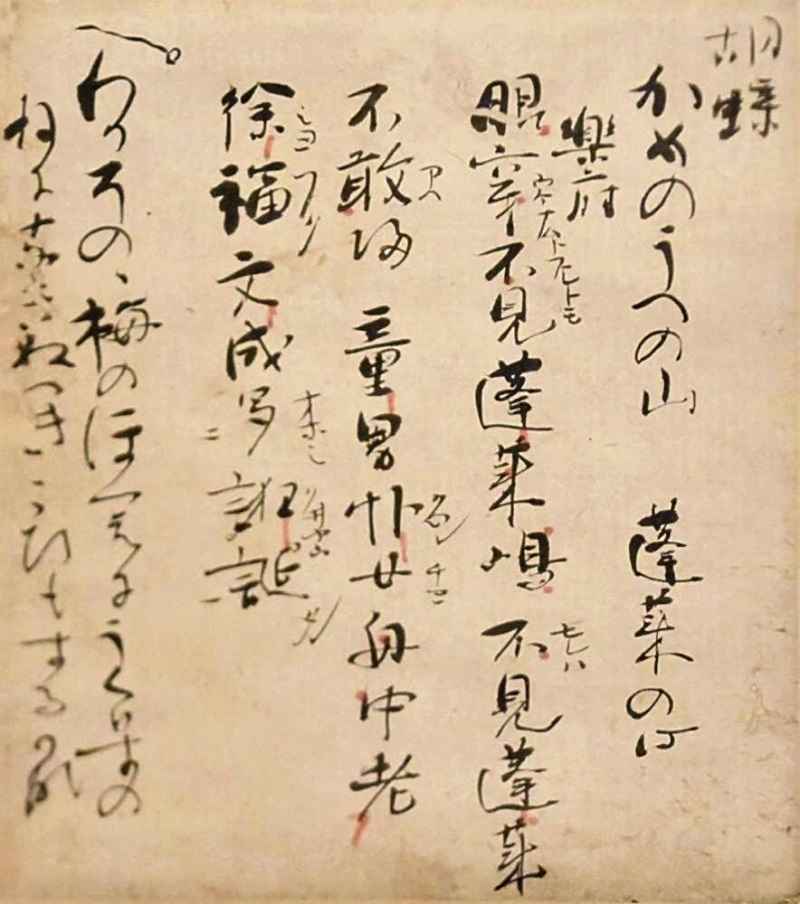 胡蝶
かめのうへの山　蓬莱の
樂府
眼穿不見蓬莱嶋　不見蓬莱
不敢帰　童男丱女舟中老
徐福文成多誑誕
わかその、梅のほつえにうくひすの
ねになきぬへきこひもする哉